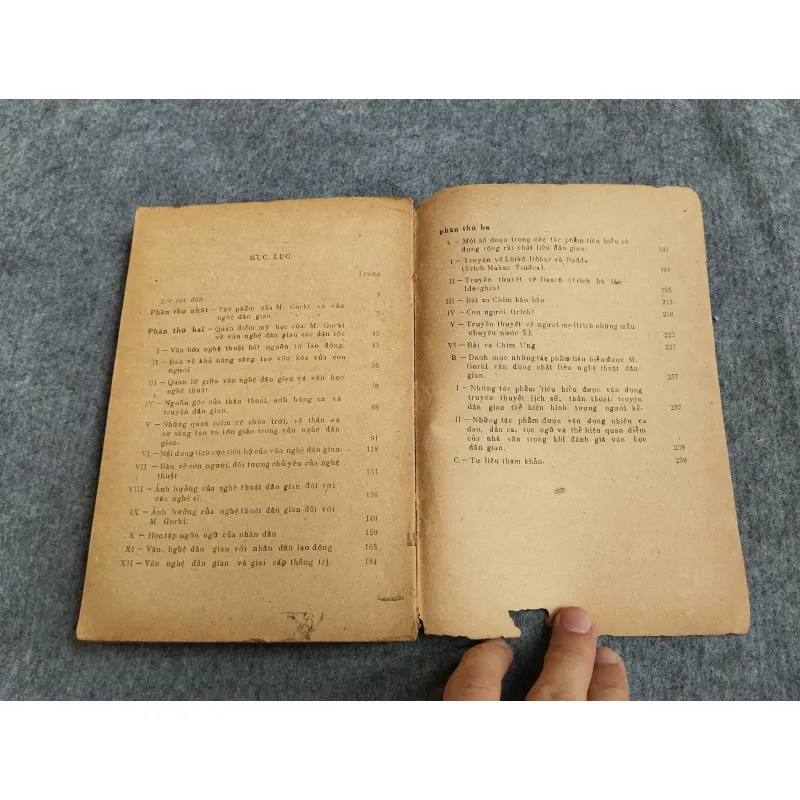 MỤC LỤC
Trang
Lời nói đầu 3
Phần thứ nhất — Tác phẩm của M. Gorki và văn
nghệ dân gian 7
Phần thứ hai — Quan điểm mỹ học của M. Gorki
và văn nghệ dân gian các dân tộc 45
I — Văn hóa nghệ thuật bắt nguồn từ lao động. 45
II — Bàn về khả năng sáng tạo văn hóa của con
người 56
III — Quan hệ giữa văn nghệ dân gian và văn học
nghệ thuật 76
IV — Nguồn gốc của thần thoại, anh hùng ca và
truyện dân gian. 88
V — Những quan niệm về chúa trời, về thần và
sự sáng tạo ra tôn giáo trong văn nghệ dân
gian. 91
VI — Nội dung tích cực tiến bộ của văn nghệ dân gian. 118
VII — Bàn về con người, đối tượng chủ yếu của nghệ
thuật 131
VIII — Ảnh hưởng của nghệ thuật dân gian đối với
các nghệ sĩ. 136
IX — Ảnh hưởng của nghệ thuật dân gian đối với
M. Gorki. 149
X — Học tập ngôn ngữ của nhân dân 159
XI — Văn nghệ dân gian với nhân dân lao động 163
XII — Văn nghệ dân gian và giai cấp thống trị. 184
phần thứ ba
— Một số đoạn trong các tác phẩm tiêu biểu sử
dụng rộng rãi chất liệu dân gian. 191
I — Truyện về Lôikô Dôbar và Rađđa
(Trích Makar Tsuđra). 191
II — Truyền thuyết về Đancô (Trích bà lão
Iđecghin) 205
III — Bài ca Chim báo bão 213
IV — Con người (trích) 216
V — Truyền thuyết về người mẹ (trích những mẩu
chuyện nước Ý). 222
VI — Bài ca Chim Ưng 227
B — Danh mục những tác phẩm tiêu biểu được M.
Gorki vận dụng chất liệu nghệ thuật dân
gian. 237
I — Những tác phẩm tiêu biểu được vận dụng
truyền thuyết lịch sử, thần thoại, truyện
dân gian thể hiện hình tượng người kể. 237
II — Những tác phẩm được vận dụng nhiều ca
dao, dân ca, tục ngữ và thể hiện quan điểm
của nhà văn trong khi đánh giá văn học
dân gian. 238
C — Tư liệu tham khảo. 239